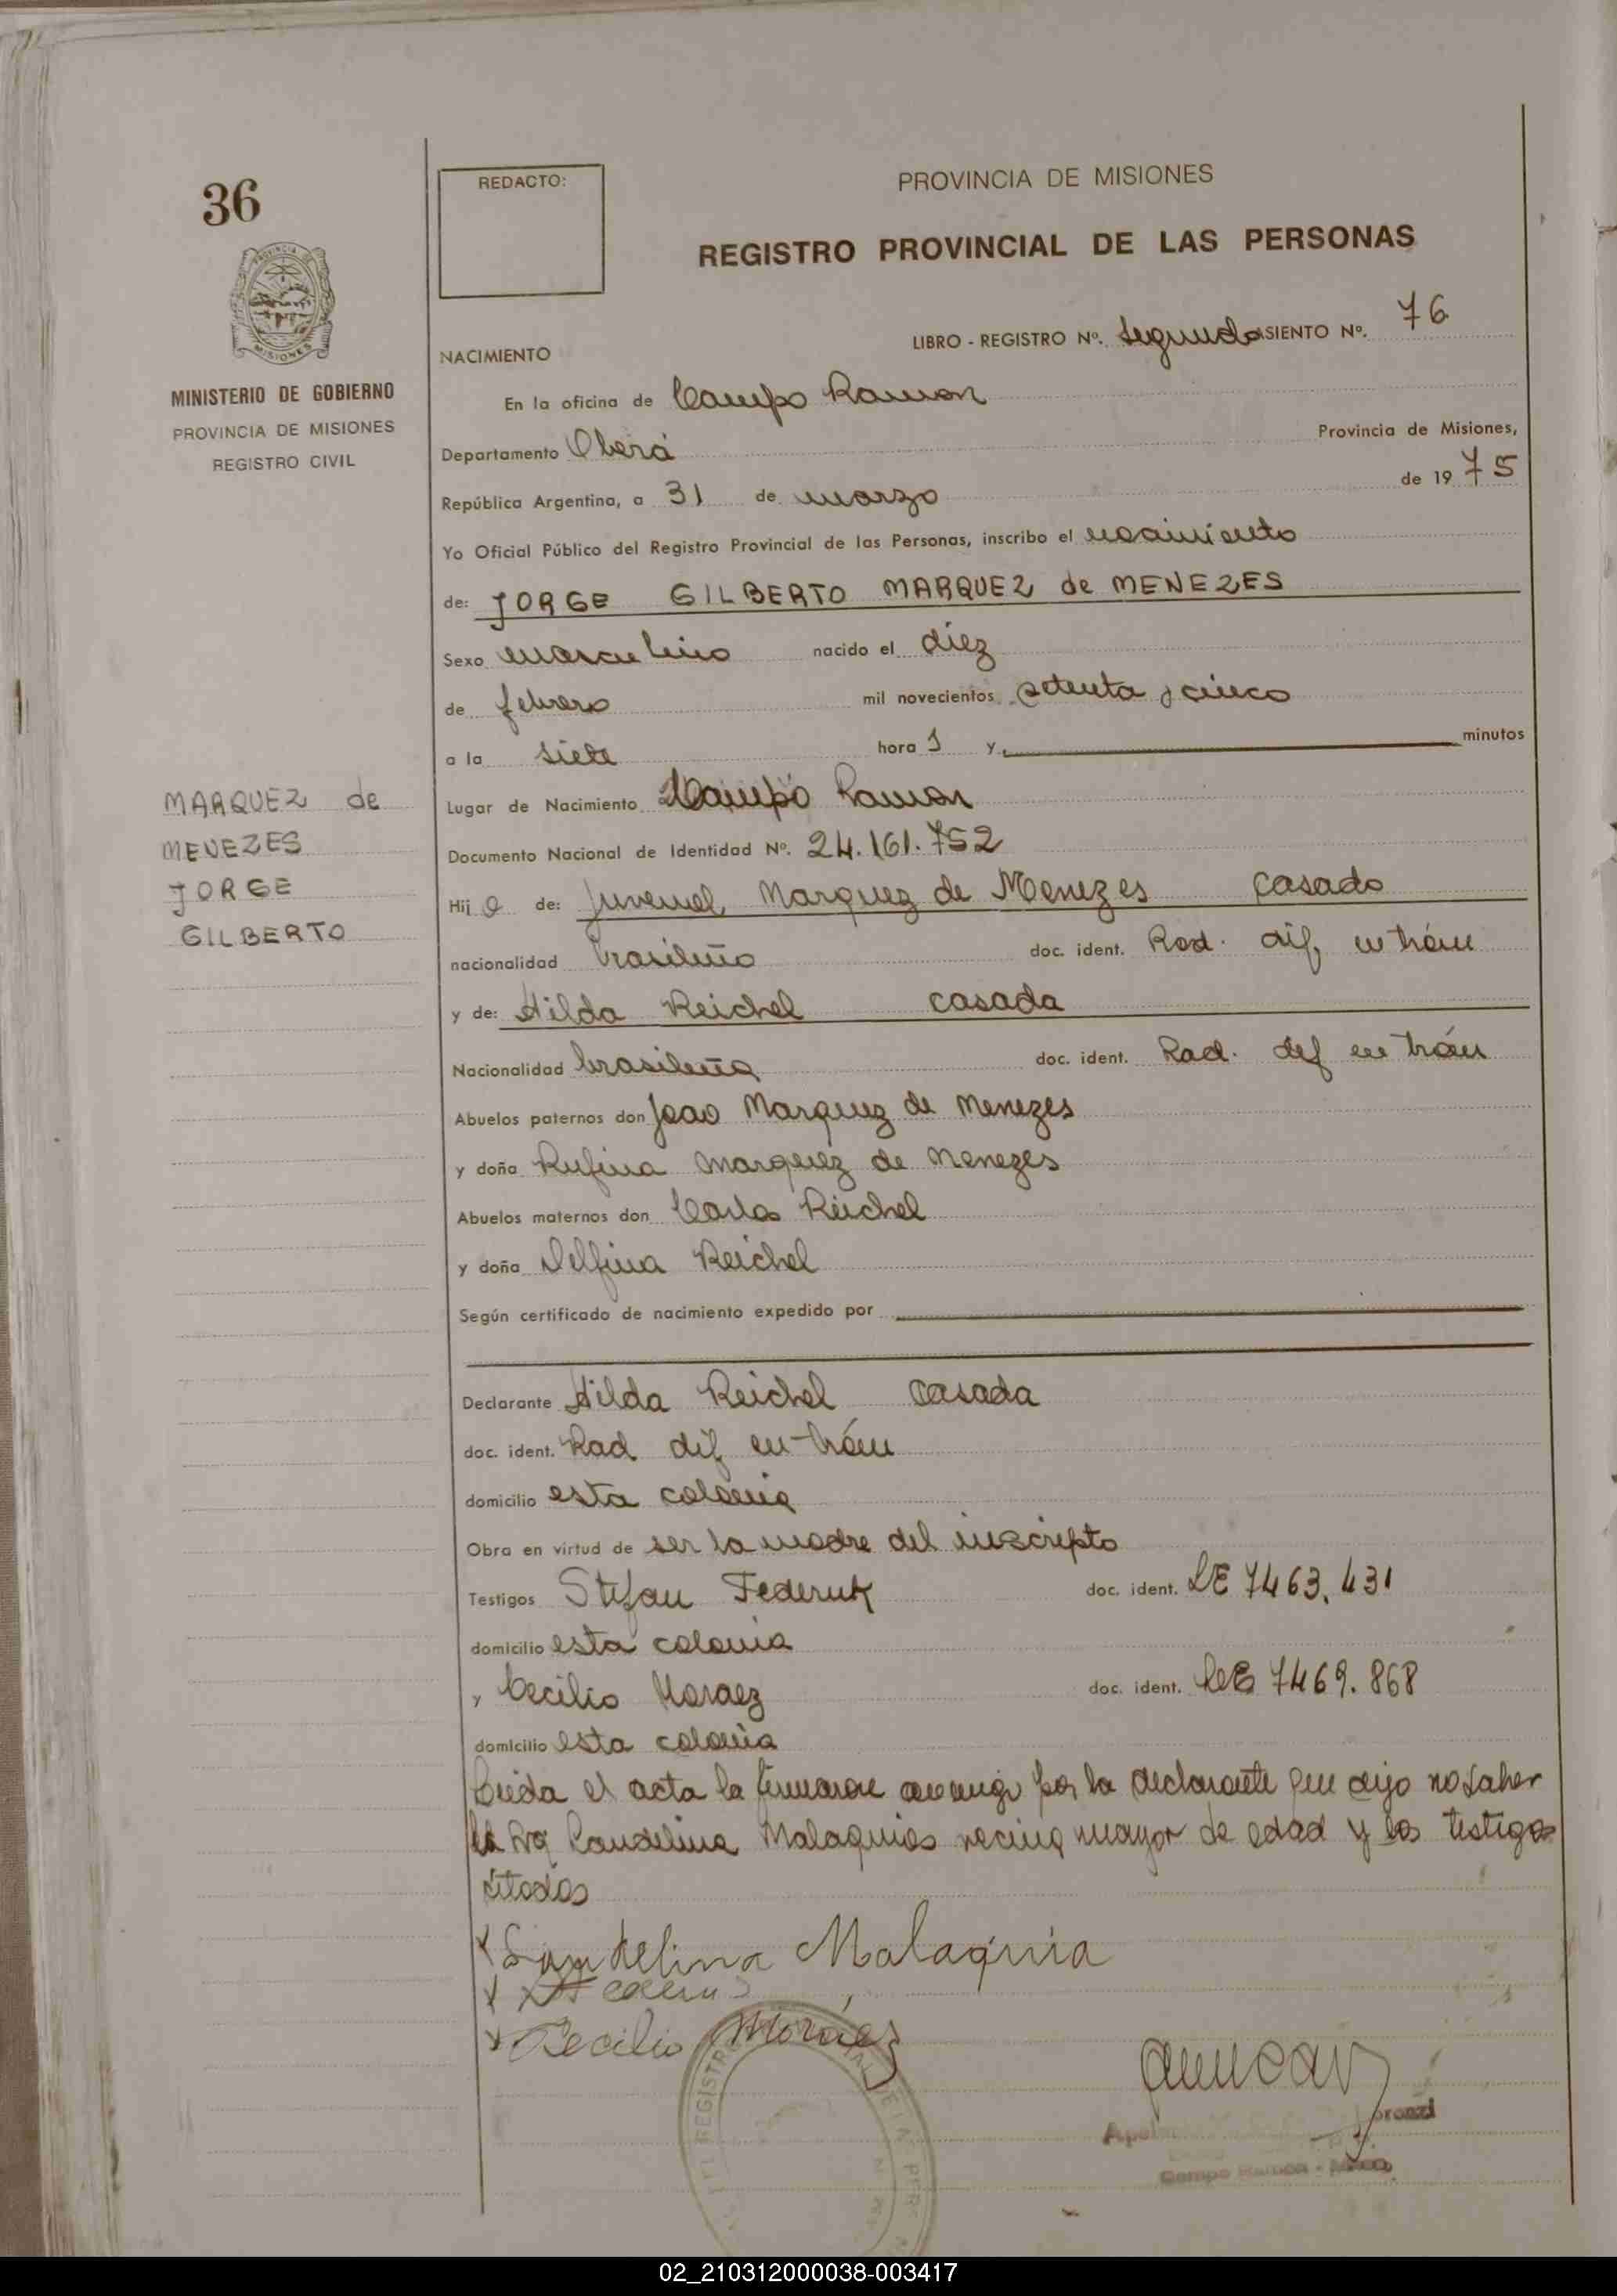 36
REDACTO:
PROVINCIA DE MISIONES
REGISTRO PROVINCIAL DE LAS PERSONAS
MISIONES
MINISTERIO DE GOBIERNO
PROVINCIA DE MISIONES
REGISTRO CIVIL
LIBRO - REGISTRO Nº. Segundo ASIENTO Nº. 76
NACIMIENTO
En la oficina de Campo Ramon
Departamento Oberá Provincia de Misiones,
República Argentina, a 31 de marzo de 1975
Yo Oficial Público del Registro Provincial de las Personas, inscribo el nacimiento
de: JORGE GILBERTO MARQUEZ de MENEZES
Sexo masculino nacido el diez
de febrero mil novecientos setenta y cinco
a la siete hora s y minutos
Lugar de Nacimiento Campo Ramon
Documento Nacional de Identidad Nº. 24.161.752
MARQUEZ de
MENEZES
JORGE
GILBERTO
Hijo de: Juvenal Marquez de Menezes casado
nacionalidad brasileño doc. ident. Rad. dif. en trám
y de: Hilda Reichel casada
Nacionalidad brasileña doc. ident. Rad. def en trám
Abuelos paternos don Joao Marquez de Menezes
y doña Rufina Marquez de Menezes
Abuelos maternos don Carlos Reichel
y doña Delfina Reichel
Según certificado de nacimiento expedido por
Declarante Hilda Reichel casada
doc. ident. Rad dif en trám
domicilio esta colonia
Obra en virtud de ser la madre del inscripto
Testigos Stefan Federuk doc. ident. LE 7463.431
domicilio esta colonia
y Cecilio Moraez doc. ident. 7469.868
domicilio esta colonia
Leida el acta la firmaron conmigo por la declarante que dijo no saber
la Sra Candelina Malaquias vecina mayor de edad y los testigos
citados
Candelina Malaquia
Cecilio Moraez
REGISTRO
Campo Ramon - Mnes.
02_210312000038-003417